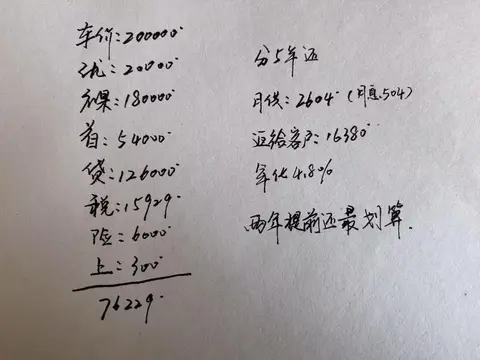 车价:200000
优:20000
裸:180000
首:54000
贷:126000
税:15929
险:6000
上:300
76229
分5年还
月供:2604 (月息.504)
返给客户:16380
年化4.8%
两年提前还最划算.